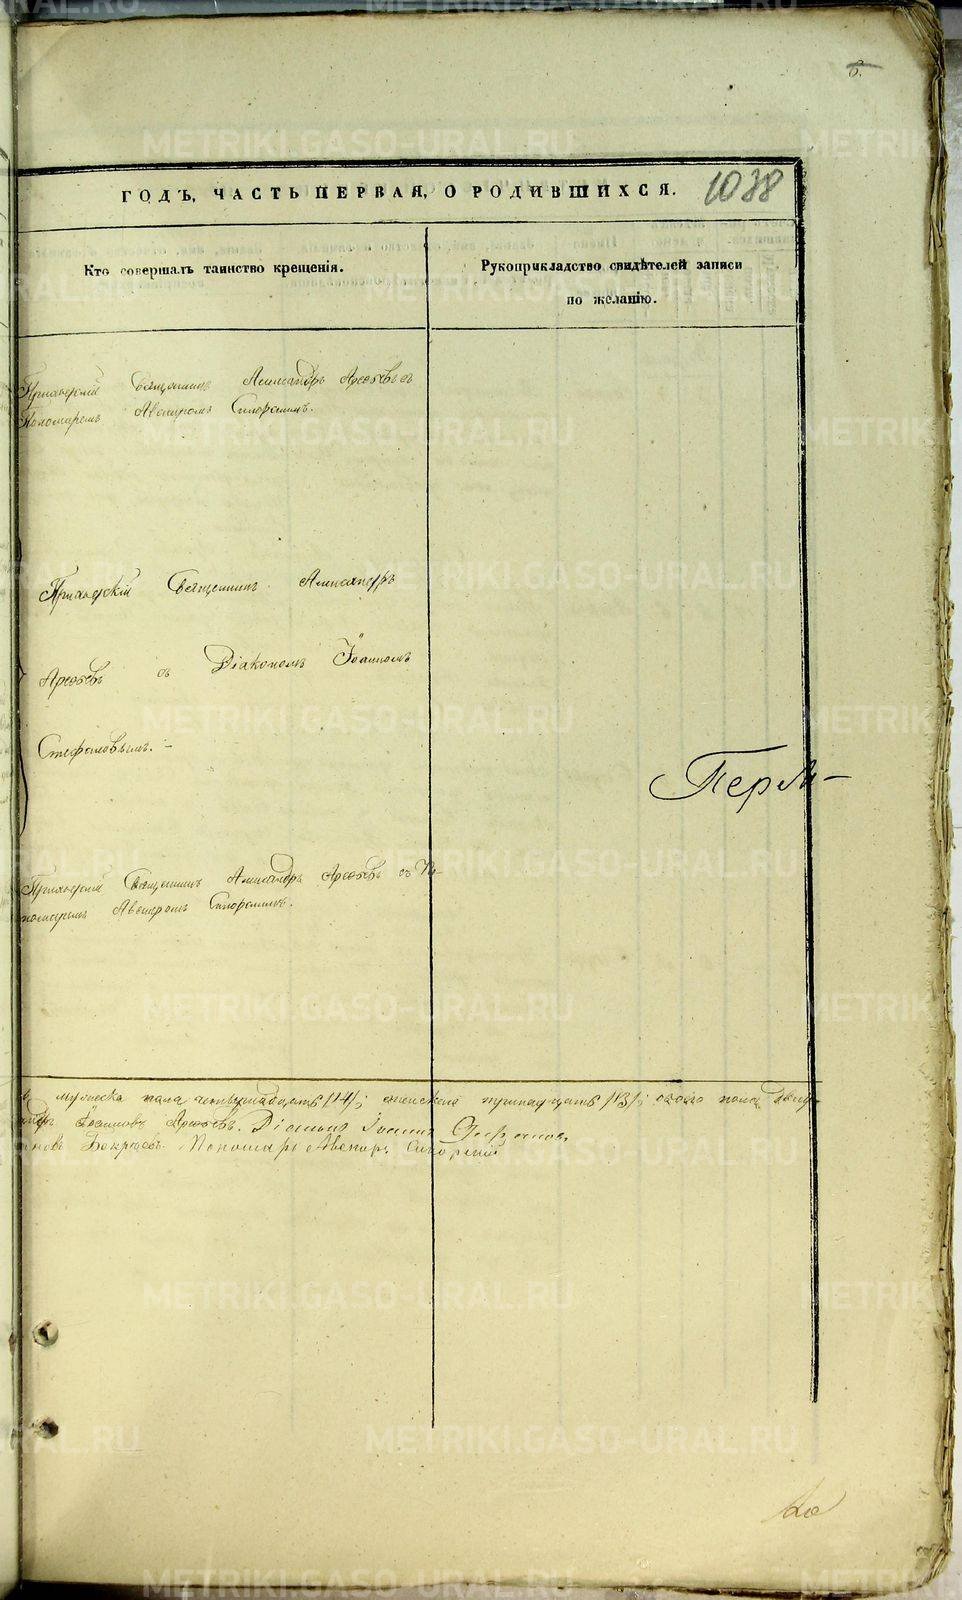 6.
ГОДЪ, ЧАСТЬ ПЕРВАЯ, О РОДИВШИХСЯ. 1038
Кто совершалъ таинство крещенія.
Рукоприкладство свидѣтелей записи
по желанію.
Приходскій Священникъ Александръ Арефьевъ съ
Пономаремъ Авениромъ
Приходскій Священникъ Александръ
Арефьевъ съ Діакономъ Іоанномъ
Стефановымъ.
Перм-
Приходскій Священникъ Александръ Арефьевъ съ По-
номаремъ Авениромъ
мужеска пола четырнадцать /14/; женскаго тринадцать /13/; обоего пола двад-
Арефьевъ. Діаконъ Іоаннъ Стефановъ
Пономарь Авениръ
METRIKI.GASO-URAL.RU